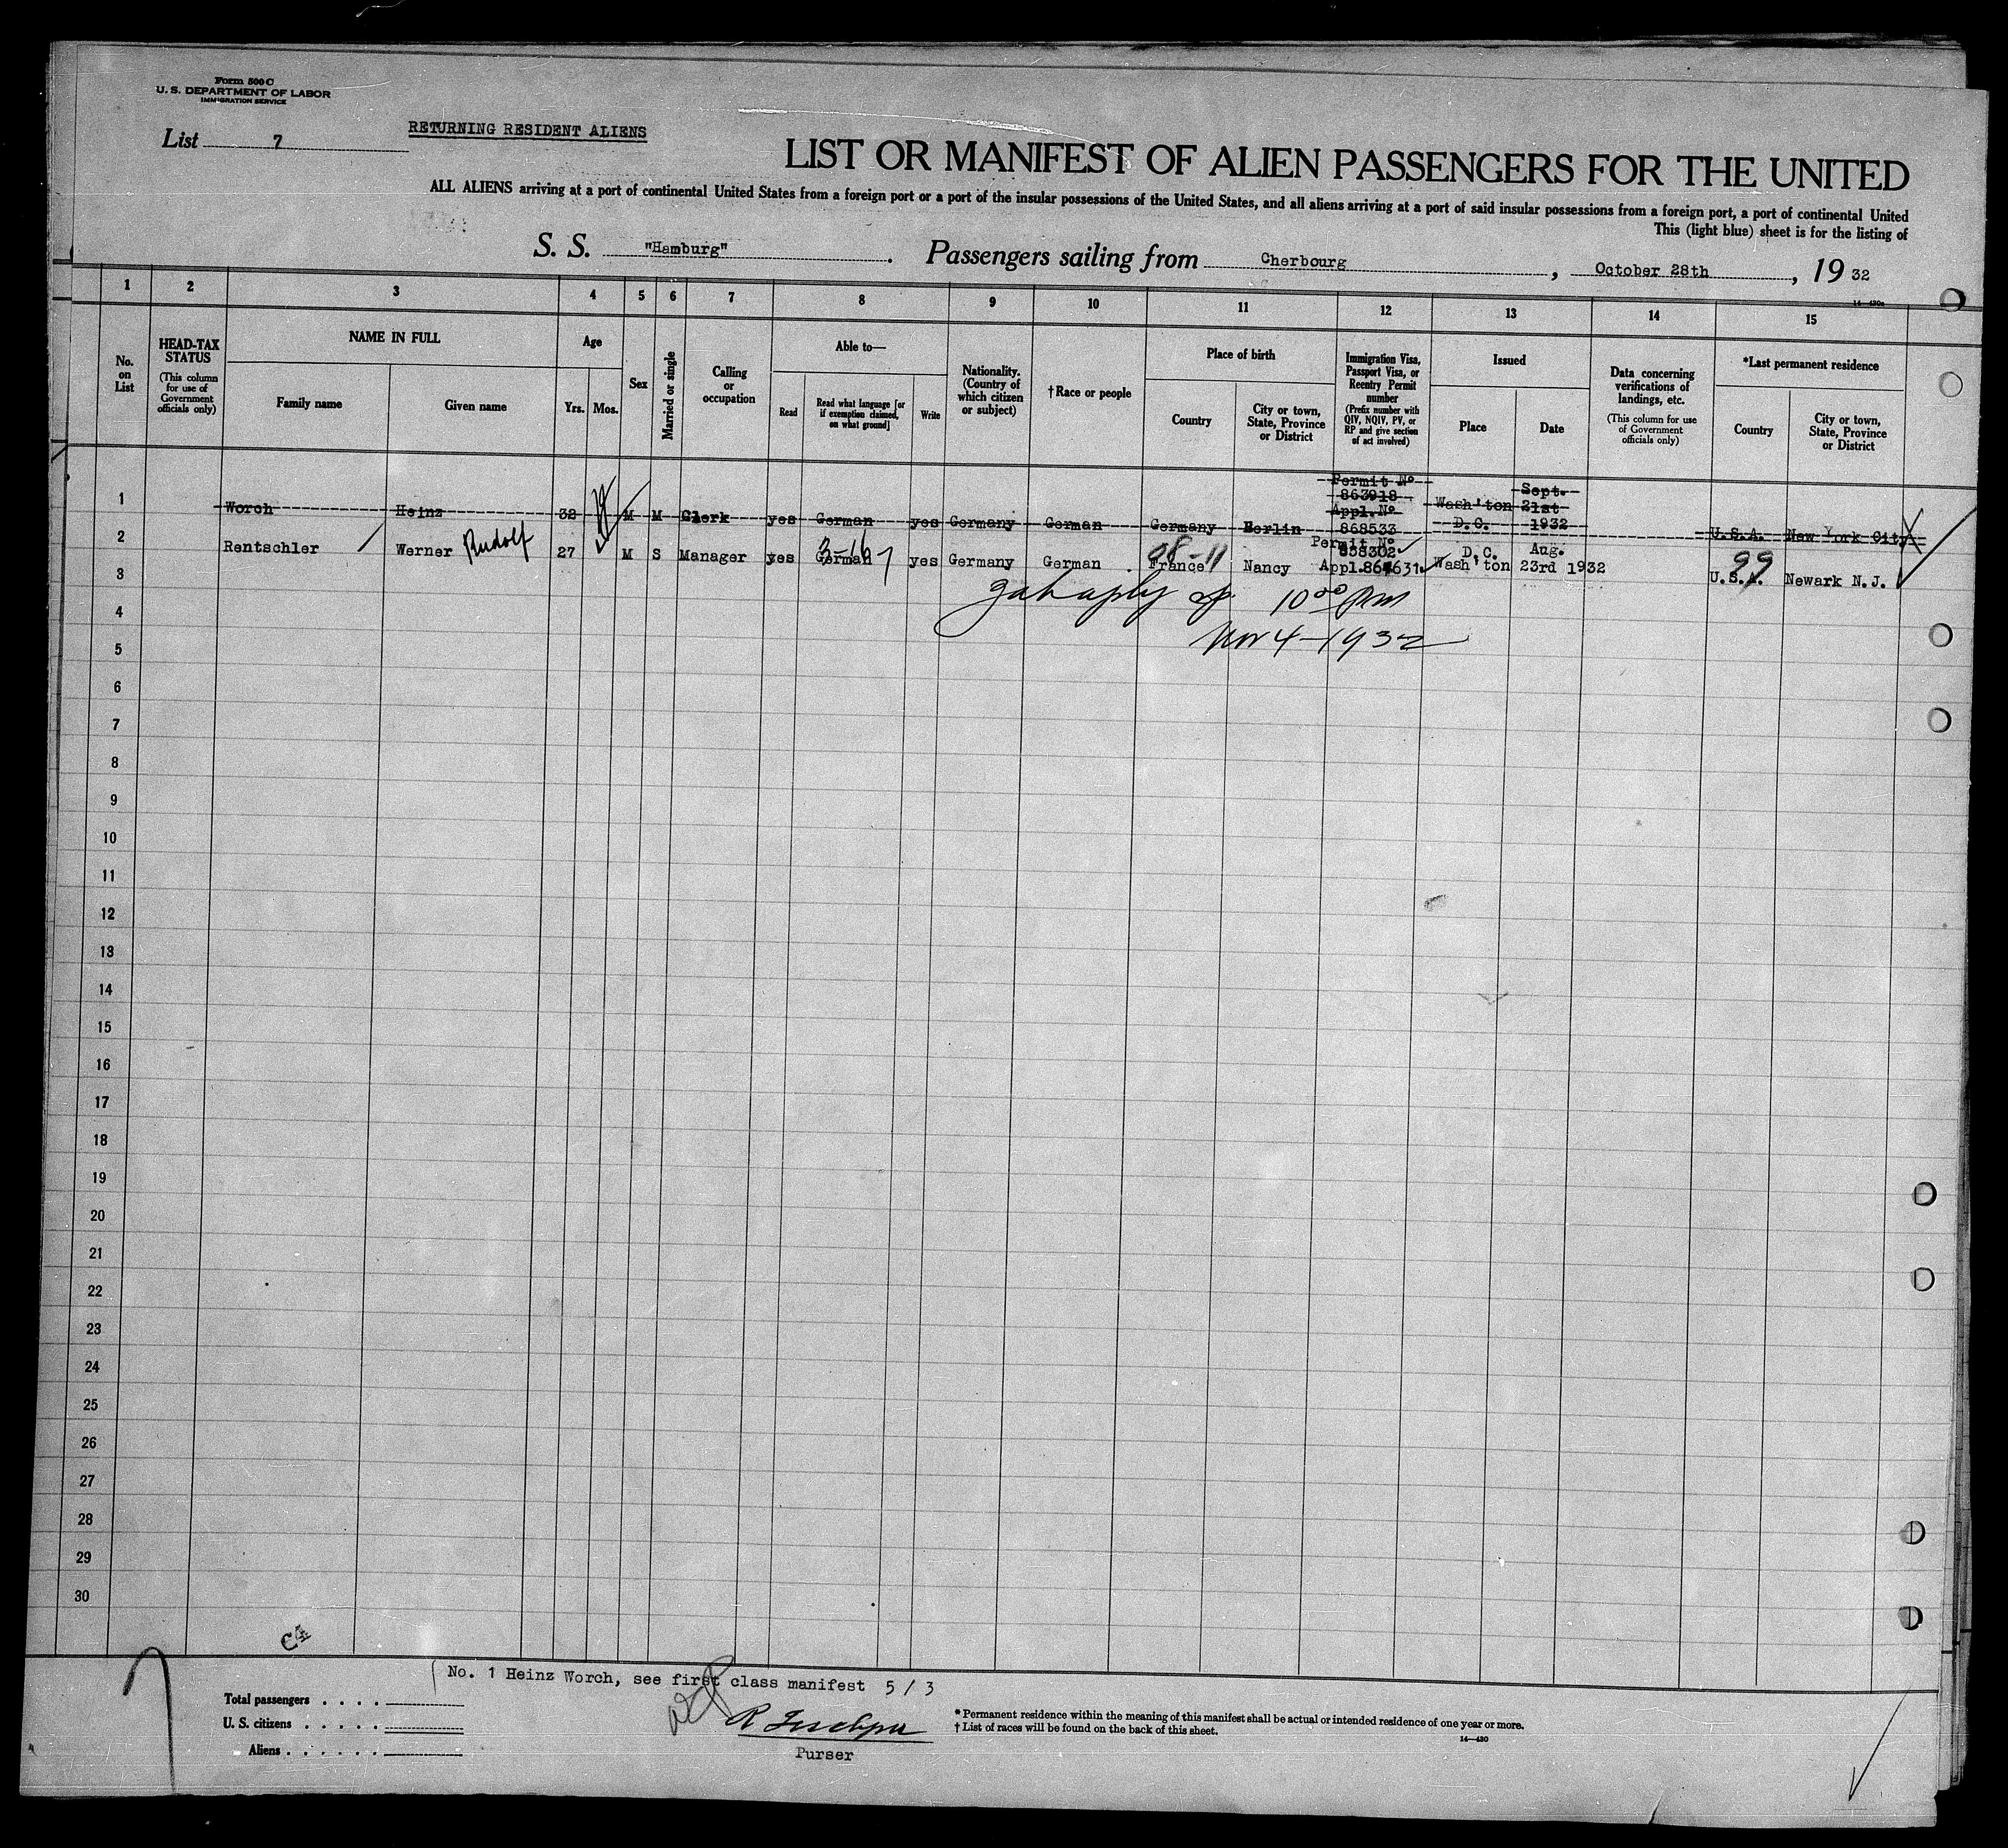 Form 500 C
U. S. DEPARTMENT OF LABOR
IMMIGRATION SERVICE
List 7
RETURNING RESIDENT ALIENS
LIST OR MANIFEST OF ALIEN PASSENGERS FOR THE UNITED
ALL ALIENS arriving at a port of continental United States from a foreign port or a port of the insular possessions of the United States, and all aliens arriving at a port of said insular possessions from a foreign port, a port of continental United
This (light blue) sheet is for the listing of
S. S. "Hamburg". Passengers sailing from Cherbourg, October 28th, 19 32
1 2 3 4 5 6 7 8 9 10 11 12 13 14 15
No. on List
HEAD-TAX STATUS
(This column for use of Government officials only)
NAME IN FULL
Family name
Given name
Age
Yrs. Mos.
Sex
Married or single
Calling or occupation
Able to—
Read
Read what language [or if exemption claimed, on what ground]
Write
Nationality. (Country of which citizen or subject)
†Race or people
Place of birth
Country
City or town, State, Province or District
Immigration Visa, Passport Visa, or Reentry Permit number
(Prefix number with QIV, NQIV, PV, or RP and give section of act involved)
Issued
Place
Date
Data concerning verifications of landings, etc.
(This column for use of Government officials only)
*Last permanent residence
Country
City or town, State, Province or District
1 Worch Heinz 32 M M Clerk yes German yes Germany German Germany Berlin Permit No 863918 Appl. No 868533 Wash'ton D.C. Sept. 21st 1932 U.S.A. New York City
2 Rentschler Werner Rudolf 27 M S Manager yes German yes Germany German France Nancy Permit No 858302 Appl. Wash'ton D.C. Aug. 23rd 1932 U.S.A. Newark N.J.
3
4 10 00 pm
5 Nov 4-1932
6
7
8
9
10
11
12
13
14
15
16
17
18
19
20
21
22
23
24
25
26
27
28
29
30
C4
No. 1 Heinz Worch, see first class manifest 5 / 3
Total passengers . . . .
U. S. citizens . . . . .
Aliens . . . . . .
Purser
* Permanent residence within the meaning of this manifest shall be actual or intended residence of one year or more.
† List of races will be found on the back of this sheet.
14—430